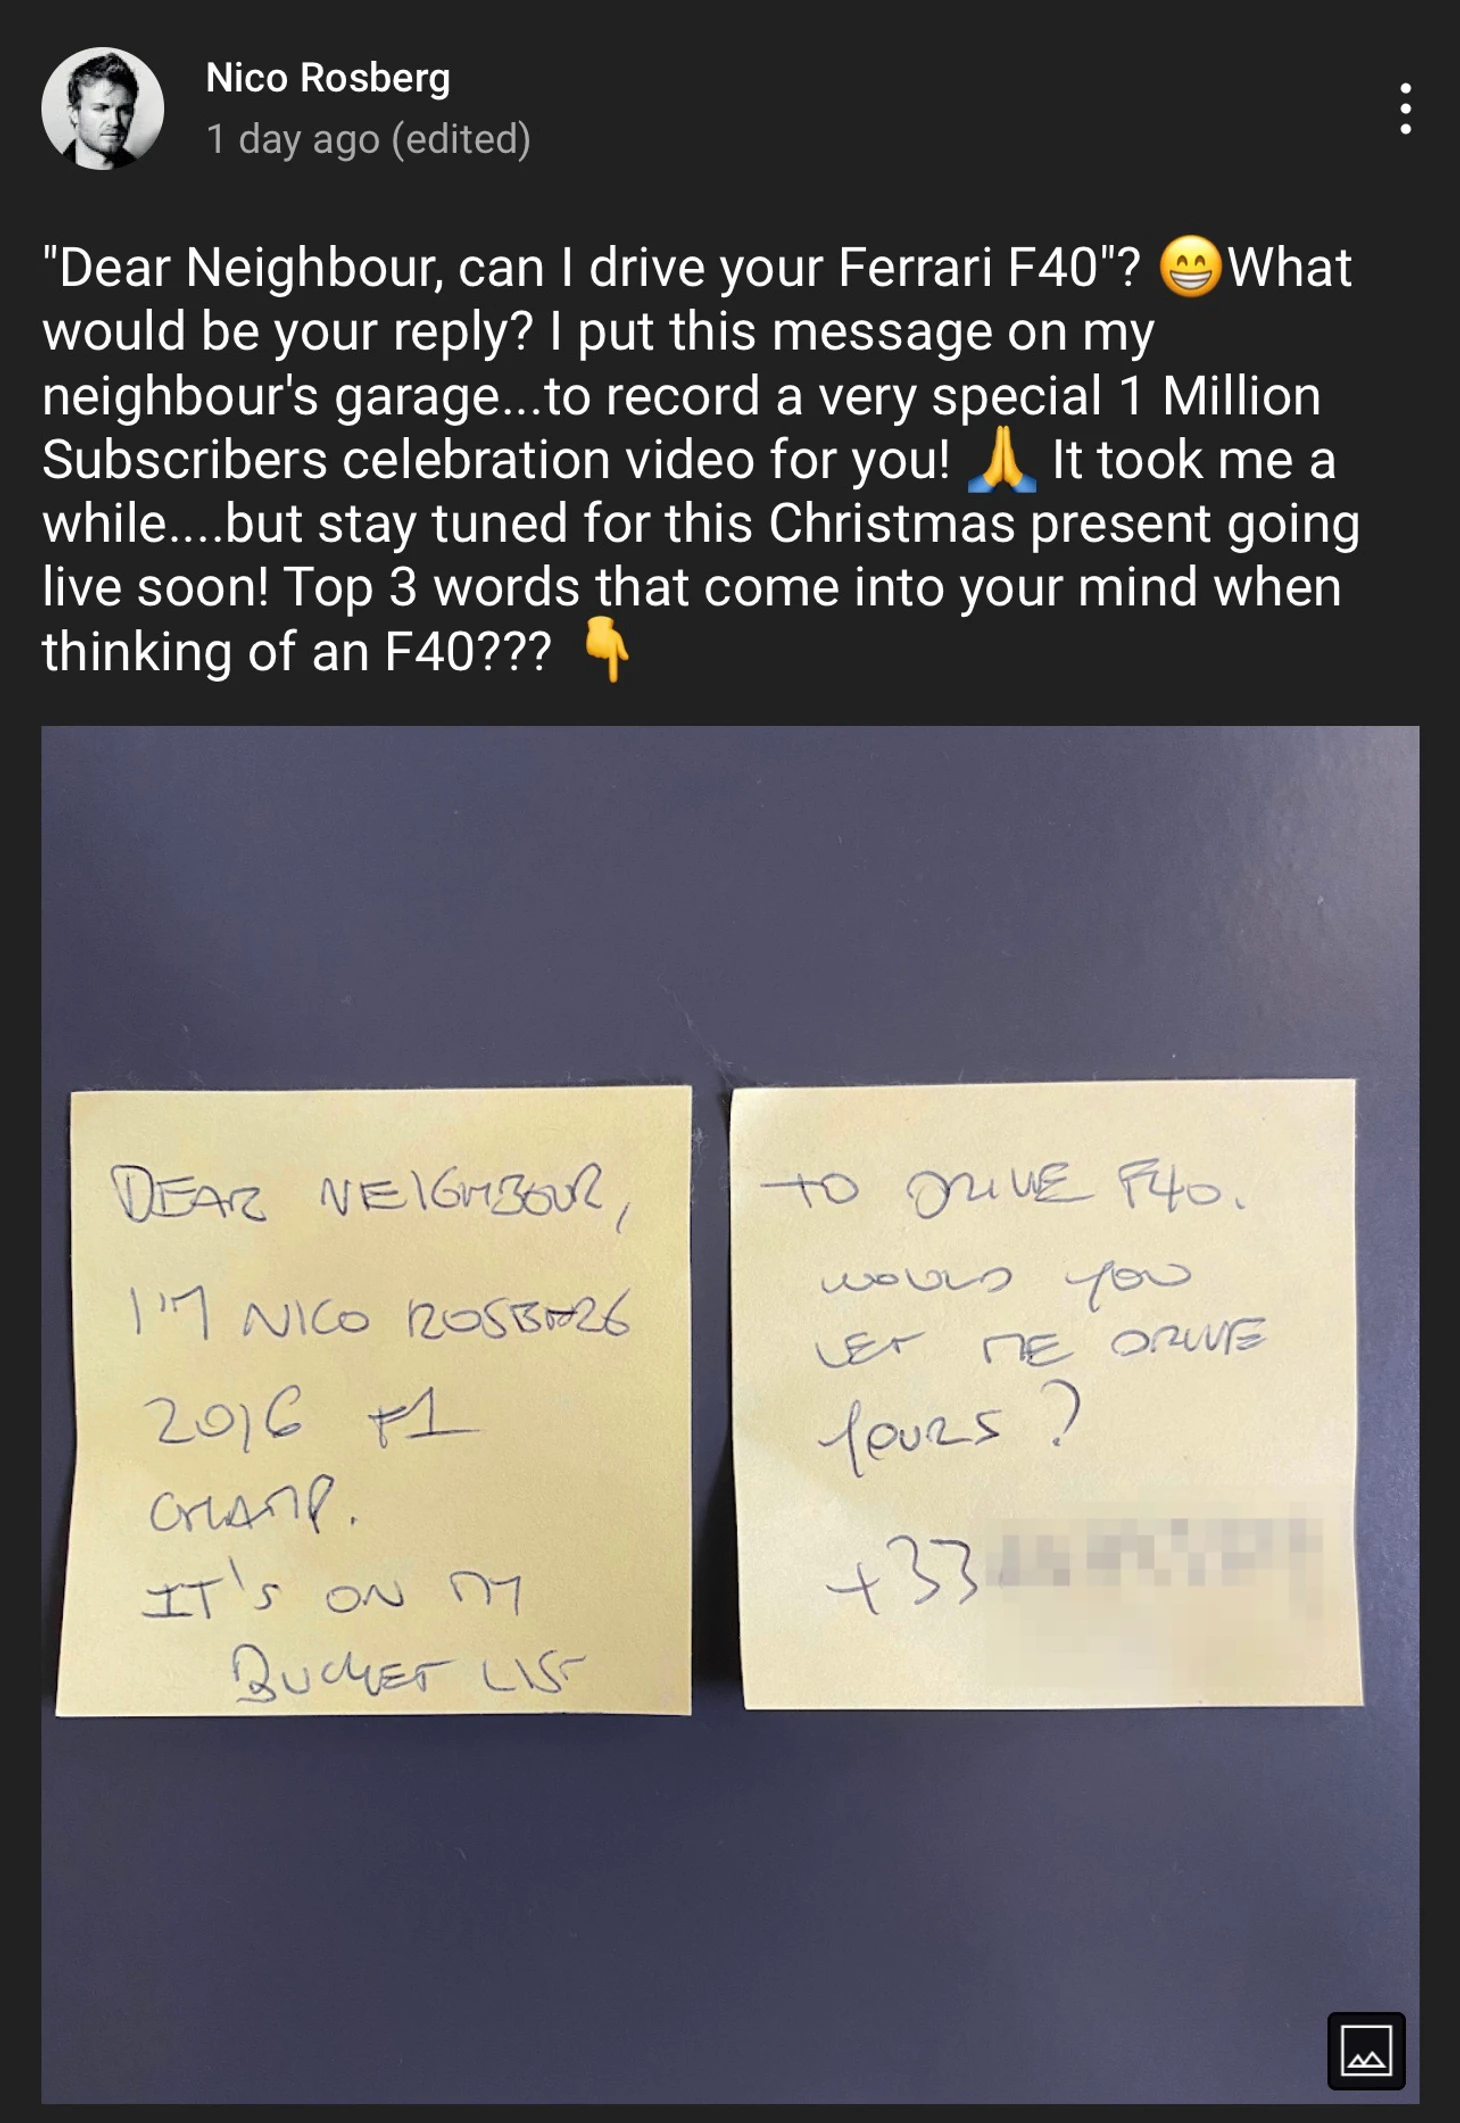 Nico Rosberg
1 day ago (edited)
"Dear Neighbour, can I drive your Ferrari F40"? 😁What
would be your reply? I put this message on my
neighbour's garage...to record a very special 1 Million
Subscribers celebration video for you! 🙏 It took me a
while....but stay tuned for this Christmas present going
live soon! Top 3 words that come into your mind when
thinking of an F40??? 👇
DEAR NEIGHBOUR,
I'M NICO ROSBERG
2016 F1
CHAMP.
IT'S ON MY
BUCKET LIST
TO DRIVE F40.
WOULD YOU
LET ME DRIVE
YOURS?
+33